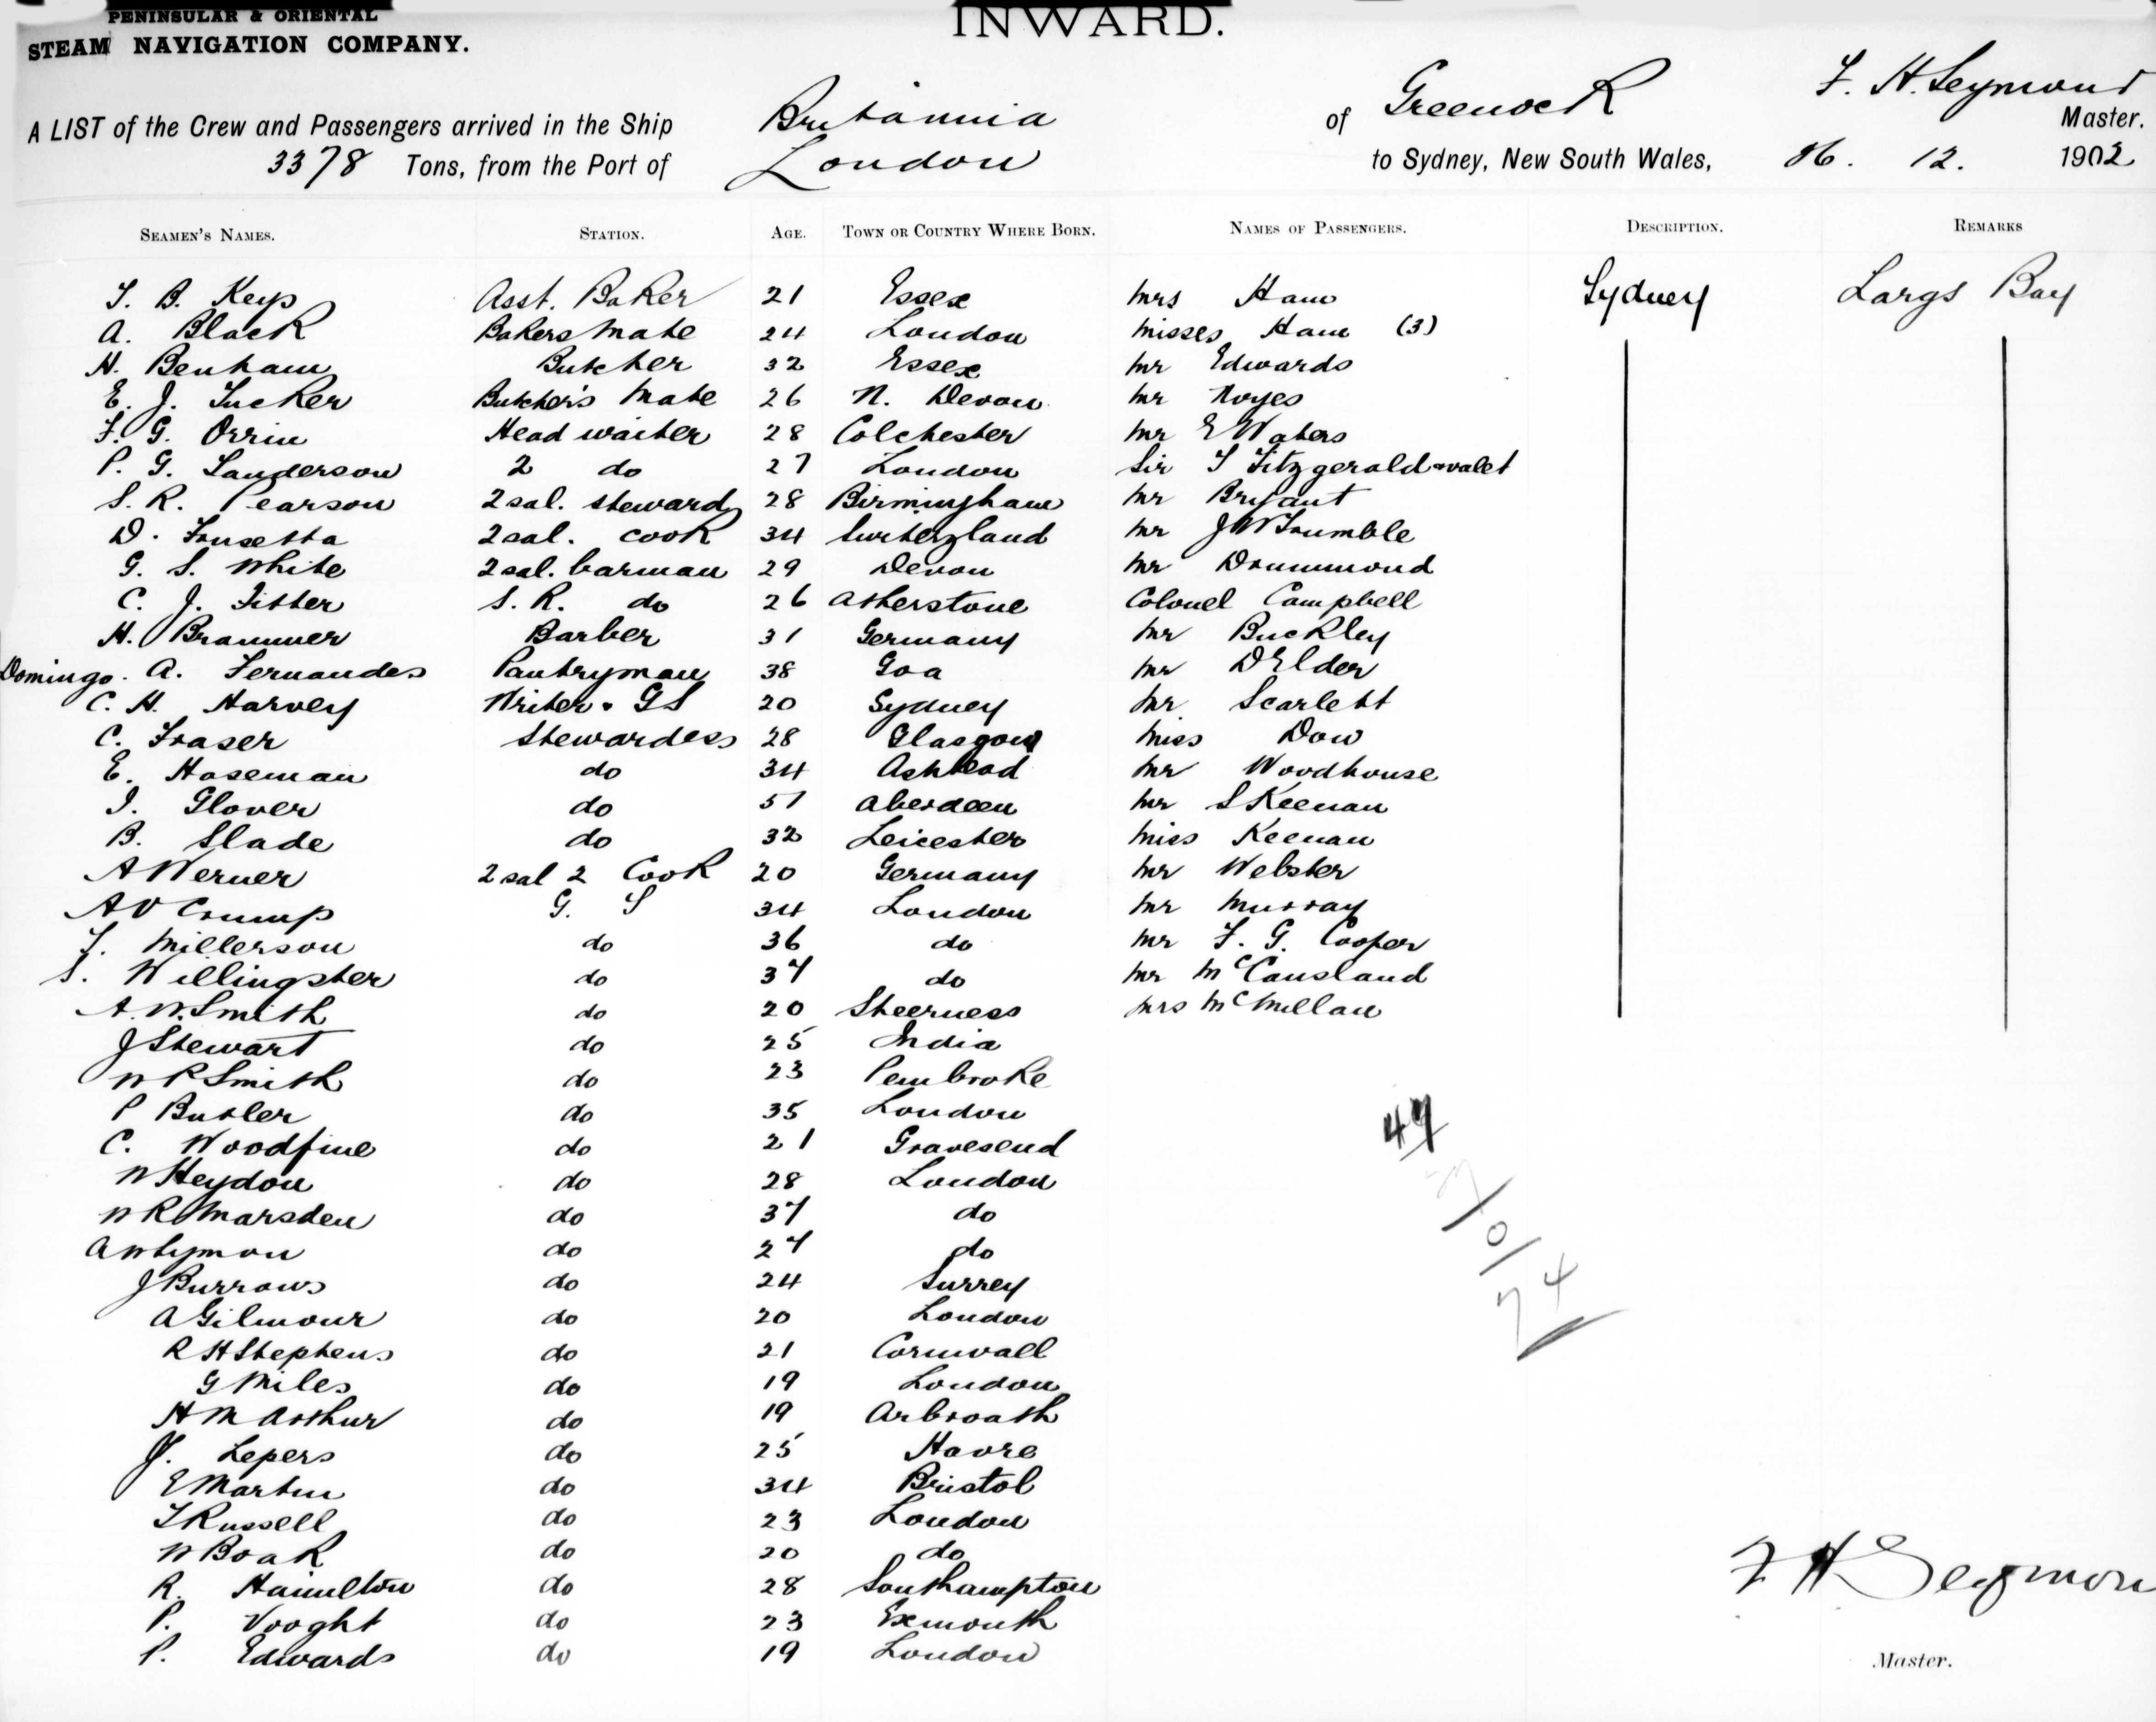 PENINSULAR & ORIENTAL
STEAM NAVIGATION COMPANY.
INWARD.
A LIST of the Crew and Passengers arrived in the Ship Britannia of Greenock F. H. Seymour Master.
3378 Tons, from the Port of London to Sydney, New South Wales, 16. 12. 1902
SEAMEN'S NAMES. STATION. AGE. TOWN OR COUNTRY WHERE BORN. NAMES OF PASSENGERS. DESCRIPTION. REMARKS
B. Keys Asst. Baker 21 Essex Mrs Ham Sydney Largs Bay
A. Black Bakers Mate 24 London Misses Ham (3)
H. Benham Butcher 32 Essex Mr Edwards
E. J. Tucker Butcher's Mate 26 N. Devon Mr Noyes
F. G. Orrin Head waiter 28 Colchester Mr E Waters
P. G. Sanderson 2 do 27 London Sir T Fitzgerald & valet
S. R. Pearson 2 sal. steward 28 Birmingham Mr Bryant
D. 2 sal. cook 34 Switerzland Mr J W Trumble
G. S. White 2 sal. barman 29 Devon Mr Drummond
C. J. S. R. do 26 Atherstone Colonel Campbell
H. Brammer Barber 31 Germany Mr Buckley
Domingo. A. Fernandes Pantryman 38 Goa Mr D Elder
C. H. Harvey Writer & GS 20 Sydney Mr Scarlett
C. Fraser Stewardess 28 Glasgow Miss Dow
E. Hoseman do 34 Ashtead Mr Woodhouse
I. Glover do 51 Aberdeen Mr S Keenan
B. Slade do 32 Leicester Miss Keenan
A Werner 2 sal 2 Cook 20 Germany Mr Webster
A V Crump G. S 34 London Mr Murray
F. Millerson do 36 do Mr F. G. Cooper
S. Willingster do 37 do Mr McCausland
A. W. Smith do 20 Sheerness Mrs McMillan
J Stewart do 25 India
W P Smith do 23 Pembroke
P Butler do 35 London
C. Woodfine do 21 Gravesend
W Heydon do 28 London
W R Marsden do 37 do
A W Symon do 27 do
J Burrows do 24 Surrey
A Gilmour do 20 London
R H Stephens do 21 Cornwall
G Miles do 19 London
H M Arthur do 19 Arbroath
J. Lepers do 25 Havre
E Martin do 34 Bristol
T Russell do 23 London
W Boak do 20 do
R. Hamilton do 28 Southampton
P. Vooght do 23 Exmouth
P. Edwards do 19 London
F H Seymour
Master.